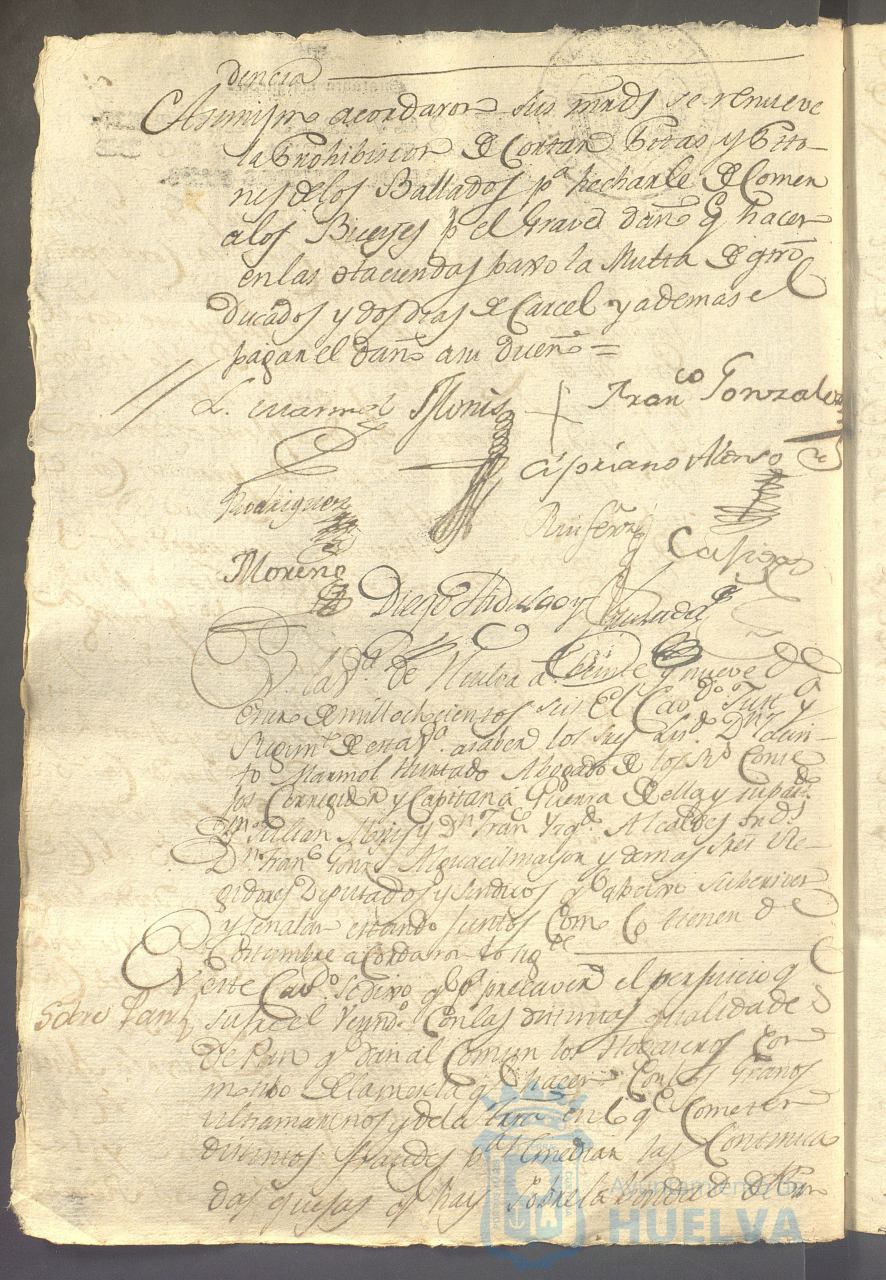 dencia
Asimismo acordaron sus mrds se renueve
la Prohibision de Cortar Pitas y Pito-
nes de los Ballados pa hecharle de Comer
a los Bueyes pr el Grave daño q hacen
en las Haciendas baxo la Multa de qtro
Ducados y dos dias de Carcel y ademas el
pagar el daño a su dueño =
L. Marmol
Monis
Franco Gonzalez
Cipriano Alonso
Rodriguez
Moreno
Diego Hidalgo y
Quesada
En la Va de Huelva a Veinte y nueve de
Enero de mill ochocientos seis El Cavdo Justa y
Regimto de esta Va a saber los Sres Lisdo Dn
to Marmol Hurtado Abogado de los Rs Conse
jos Corregidor y Capitan a Guerra de ella y su
Dn Julian Monis y Dn Franco Alcaldes Ords
Dn Franco Gonz Alguacil mayor y demas Sres Re-
gidores Diputados y Sindicos q aqui suscriven
y señalan estando juntos Como lo tienen de
Costumbre acordaron lo sigte
En este Cavdo se dixo q pa precaver el perjuicio q
Sobre Pan
sufre el Vezindo Con las distintas qualidades
de Pan q dan al Comun los Horneros con
motibo de la mescla q hacen Con los Granos
ultramarinos y de la tierra en lo qe Cometen
distintos fraudes pa remediar las Continua
das quejas q hay sobre la bondad del Pan
Ayuntamiento de
HUELVA